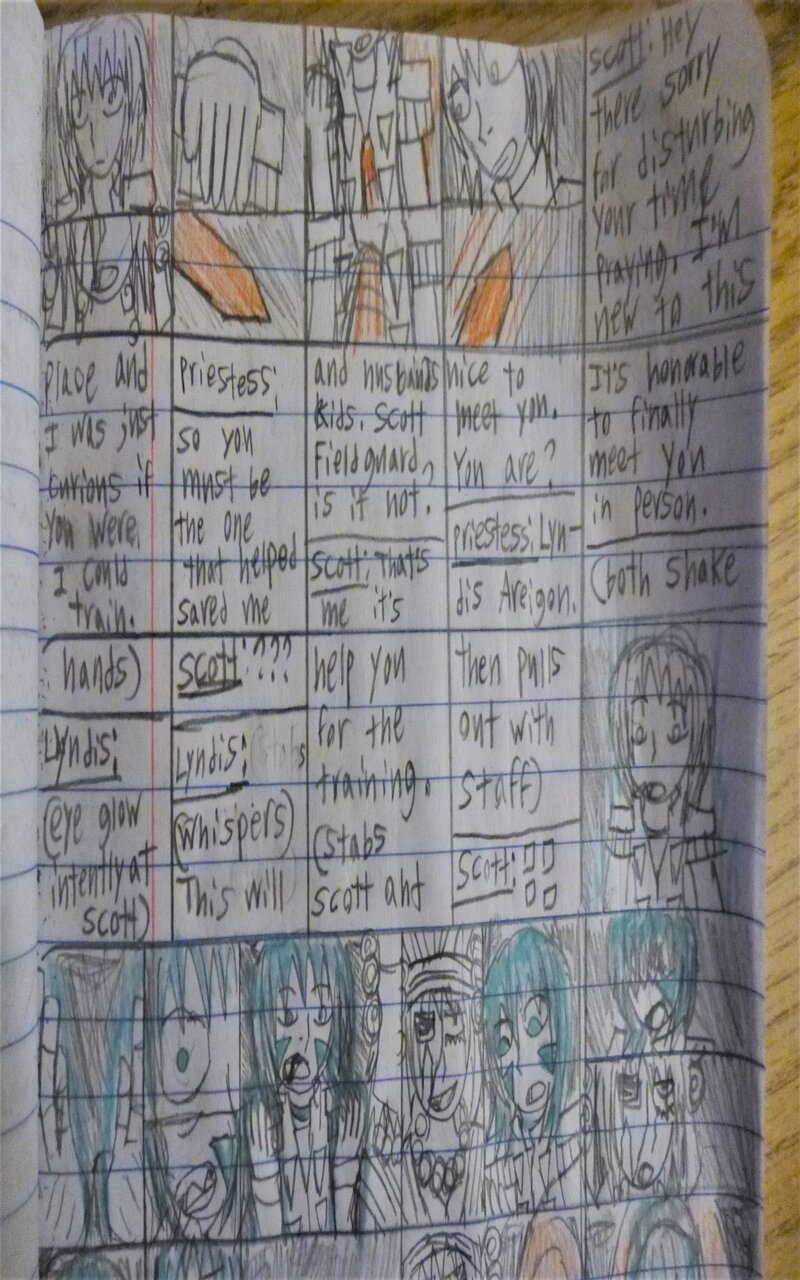 scott: Hey
there sorry
for disturbing
your time
praying. I'm
new to this
place and
I was just
curious if
you were,
I could
train.
priestess:
so you
must be
the one
that helped
saved me
and husbands
kids. Scott
Fieldguard,
is it not.
scott: That's
me it's
nice to
meet you.
You are?
priestess: Lyn-
dis Areigon.
It's honorable
to finally
meet you
in person.
(both shake
hands)
Lyndis:
(eye glow
intently at
scott)
scott: ???
Lyndis: (stabs
(whispers)
This will
help you
for the
training.
(stabs
scott and
then pulls
out with
staff)
Scott: